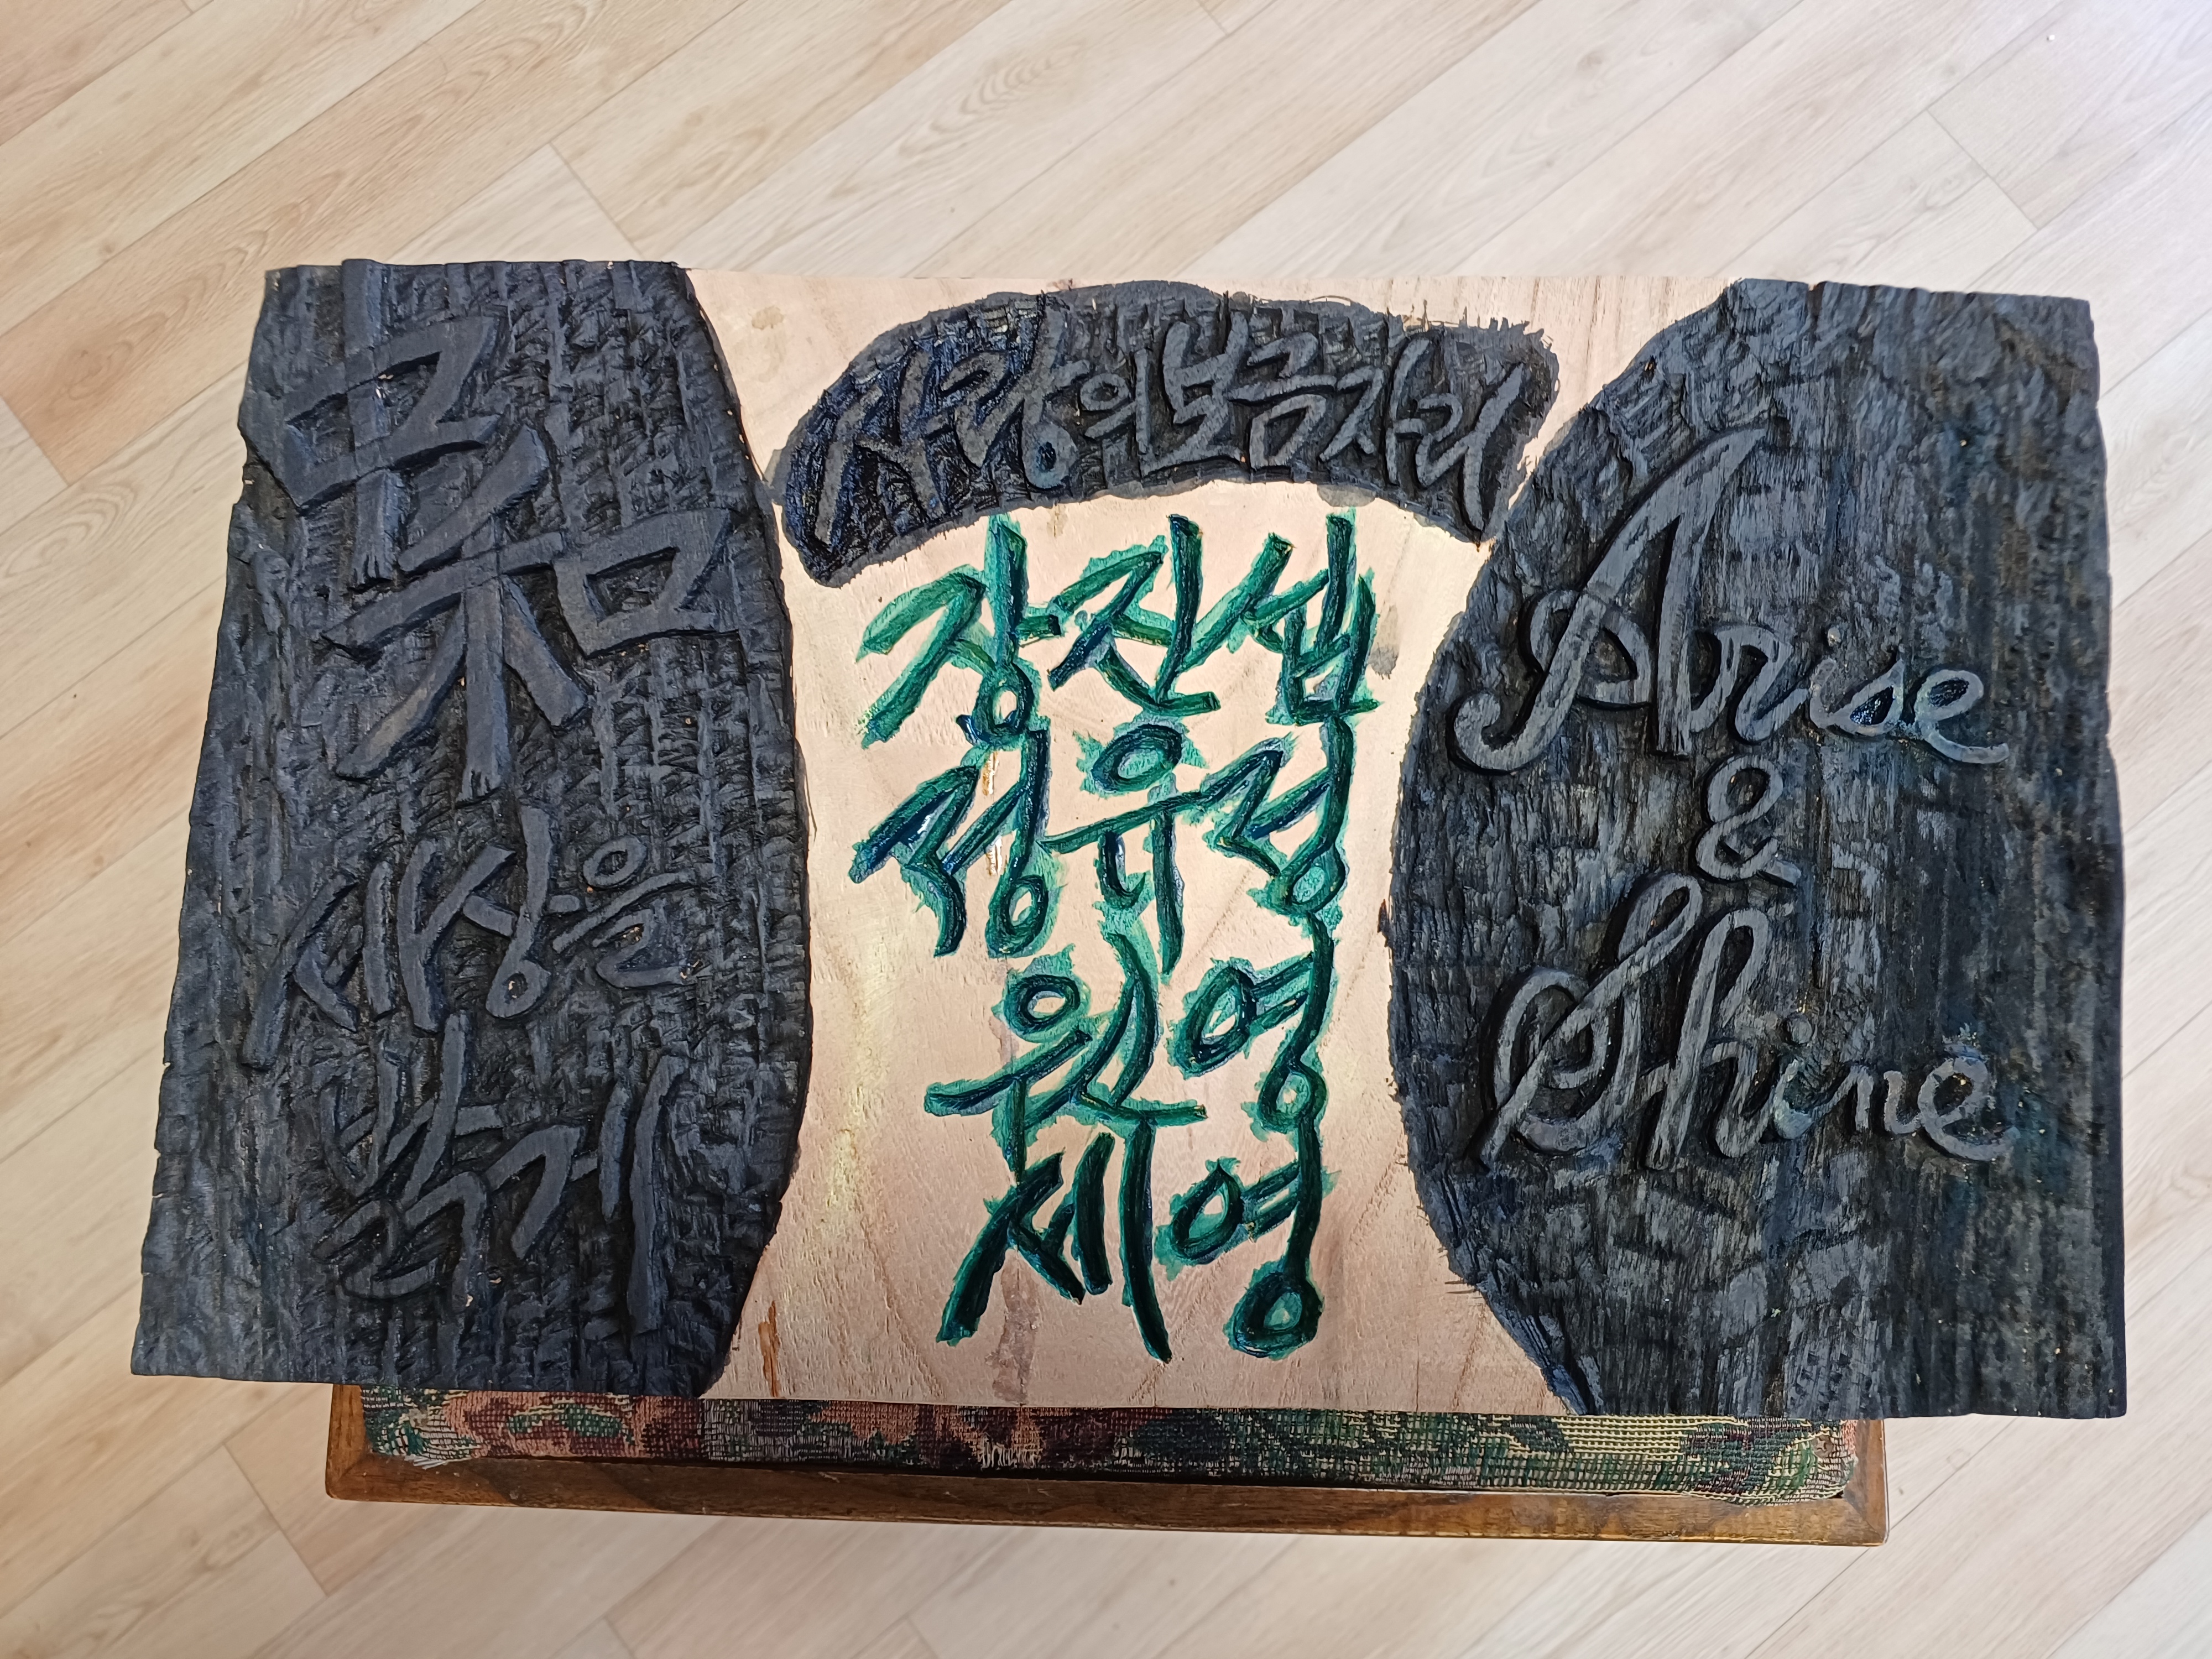 中和
세상을
밝게
사랑의 보금자리
장진섭
정유정
세영
Arise
&
Shine